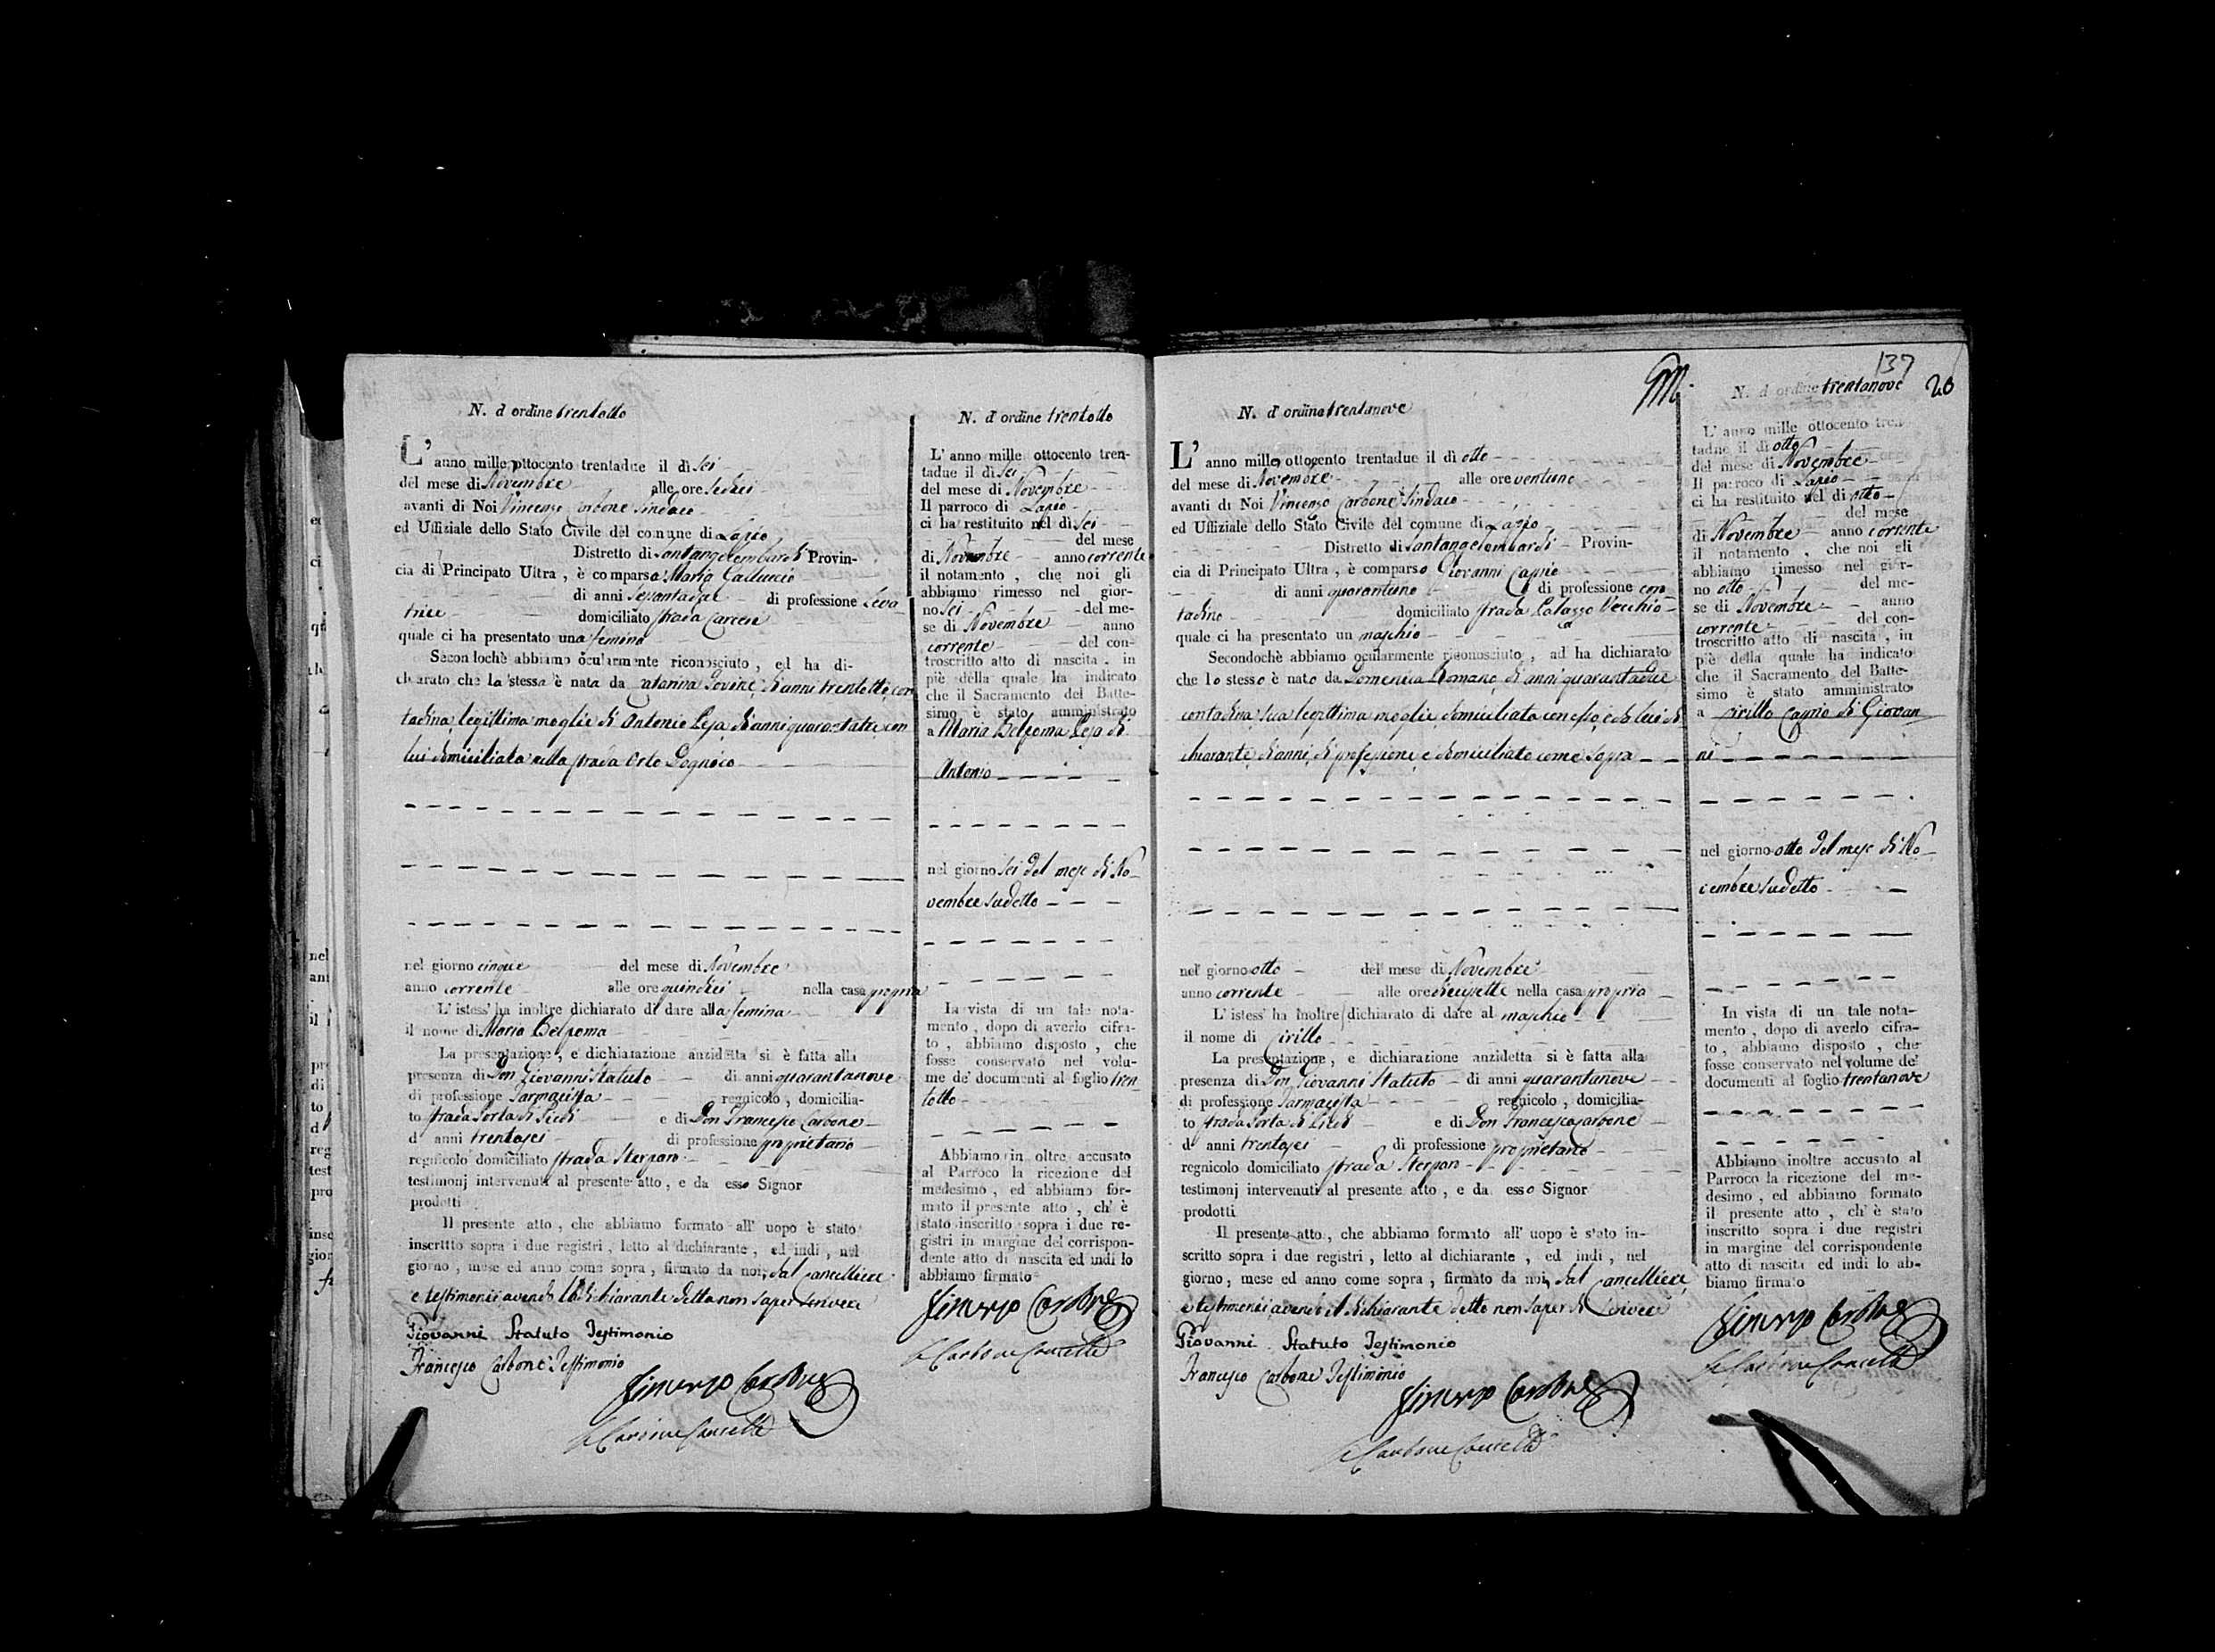 N. d' ordine trentotto
L' anno mille ottocento trentadue il dì sei
del mese di Novembre alle ore sedici
avanti di Noi Vincenzo Carbone Sindaco
ed Uffiziale dello Stato Civile del comune di Lapio
Distretto di Santangelombardi Provin-
cia di Principato Ultra, è comparsa Maria Galluccio
di anni di professione Leva-
trice domiciliata strada Carcere
quale ci ha presentato una femina
Secondochè abbiamo ocularmente riconosciuto, ed ha di-
chiarato che la stessa è nata da Catarina Iovine di anni trentotto, con
tadina, legittima moglie di Antonio Lesa di anni quarantatre, con
lui domiciliata nella strada Orto
nel giorno cinque del mese di Novembre
anno corrente alle ore quindici nella casa propria
L' istess' ha inoltre dichiarato di dare alla femina
il nome di Maria Belsoma
La presentazione, e dichiarazione anzidetta si è fatta alla
presenza di Don Giovanni Statuto di anni quarantanove
di professione Farmacista regnicolo, domicilia-
to strada Porta di e di Don Francesco Carbone
d' anni trentasei di professione proprietario
regnicolo domiciliato strada Sterparo
testimonj intervenuti al presente atto, e da esso Signor
prodotti
Il presente atto, che abbiamo formato all' uopo è stato
inscritto sopra i due registri, letto al dichiarante, ed indi, nel
giorno, mese ed anno come sopra, firmato da noi, dal Cancelliere
e testimonii avendo la dichiarante detto non saper scrivere
Giovanni Statuto Testimonio
Francesco Carbone Testimonio
Vincenzo Carbone
Carbone Cancell.e
N. d' ordine trentotto
L' anno mille ottocento tren-
tadue il dì sei
del mese di Novembre
Il parroco di Lapio
ci ha restituito nel dì sei
del mese
di Novembre anno corrente
il notamento, che noi gli
abbiamo rimesso nel gior-
no sei del me-
se di Novembre anno
corrente del con-
troscritto atto di nascita, in
piè della quale ha indicato
che il Sacramento del Batte-
simo è stato amministrato
a Maria Belsoma Lesa di
Antonio
nel giorno sei del mese di No-
vembre sudetto
In vista di un tale nota-
mento, dopo di averlo cifra-
to, abbiamo disposto, che
fosse conservato nel volu-
me de' documenti al foglio tren
totto
Abbiamo in oltre accusato
al Parroco la ricezione del
medesimo, ed abbiamo for-
mato il presente atto, ch' è
stato inscritto sopra i due re-
gistri in margine del corrispon-
dente atto di nascita ed indi lo
abbiamo firmato
Vincenzo Carbone
Carbone Cancell.e
137
20
N. d' ordine trentanove
L' anno mille ottocento trentadue il dì otto
del mese di Novembre alle ore ventuno
avanti di Noi Vincenzo Carbone Sindaco
ed Uffiziale dello Stato Civile del comune di Lapio
Distretto di Santangelombardi Provin-
cia di Principato Ultra, è comparso Giovanni Caprio
di anni quarantuno di professione con
tadino domiciliato strada Palazzo Vecchio
quale ci ha presentato un maschio
Secondochè abbiamo ocularmente riconosciuto, ad ha dichiarato
che lo stesso è nato da Domenica Romano di anni quarantadue
contadina, sua legittima moglie domiciliata con esso, e da lui di
chiarante, di anni, di professione, e domiciliato come sopra
nel giorno otto del mese di Novembre
anno corrente alle ore diecisette nella casa propria
L' istess' ha inoltre dichiarato di dare al maschio
il nome di Cirillo
La presentazione, e dichiarazione anzidetta si è fatta alla
presenza di Don Giovanni Statuto di anni quarantanove
di professione Farmacista regnicolo, domicilia-
to strada Porta di e di Don Francesco Carbone
d' anni trentasei di professione proprietario
regnicolo domiciliato strada Sterparo
testimonj intervenuti al presente atto, e da esso Signor
prodotti
Il presente atto, che abbiamo formato all' uopo è stato in-
scritto sopra i due registri, letto al dichiarante, ed indi, nel
giorno, mese ed anno come sopra, firmato da noi, dal Cancelliere,
e testimonii avendo il dichiarante detto non saper di scrivere
Giovanni Statuto Testimonio
Francesco Carbone Testimonio
Vincenzo Carbone
Carbone Cancell.e
N. d' ordine trentanove
L' anno mille ottocento tren-
tadue il dì otto
del mese di Novembre
Il parroco di Lapio
ci ha restituito nel dì otto
del mese
di Novembre anno corrente
il notamento, che noi gli
abbiamo rimesso nel gior-
no otto del me-
se di Novembre anno
corrente del con-
troscritto atto di nascita, in
piè della quale ha indicato
che il Sacramento del Batte-
simo è stato amministrato
a Cirillo Caprio di Giovan
ni
nel giorno otto del mese di No-
vembre sudetto
In vista di un tale nota-
mento, dopo di averlo cifra-
to, abbiamo disposto, che
fosse conservato nel volume de'
documenti al foglio trentanove
Abbiamo inoltre accusato al
Parroco la ricezione del me-
desimo, ed abbiamo formato
il presente atto, ch' è stato
inscritto sopra i due registri
in margine del corrispondente
atto di nascita ed indi lo ab-
biamo firmato
Vincenzo Carbone
Carbone Cancell.e